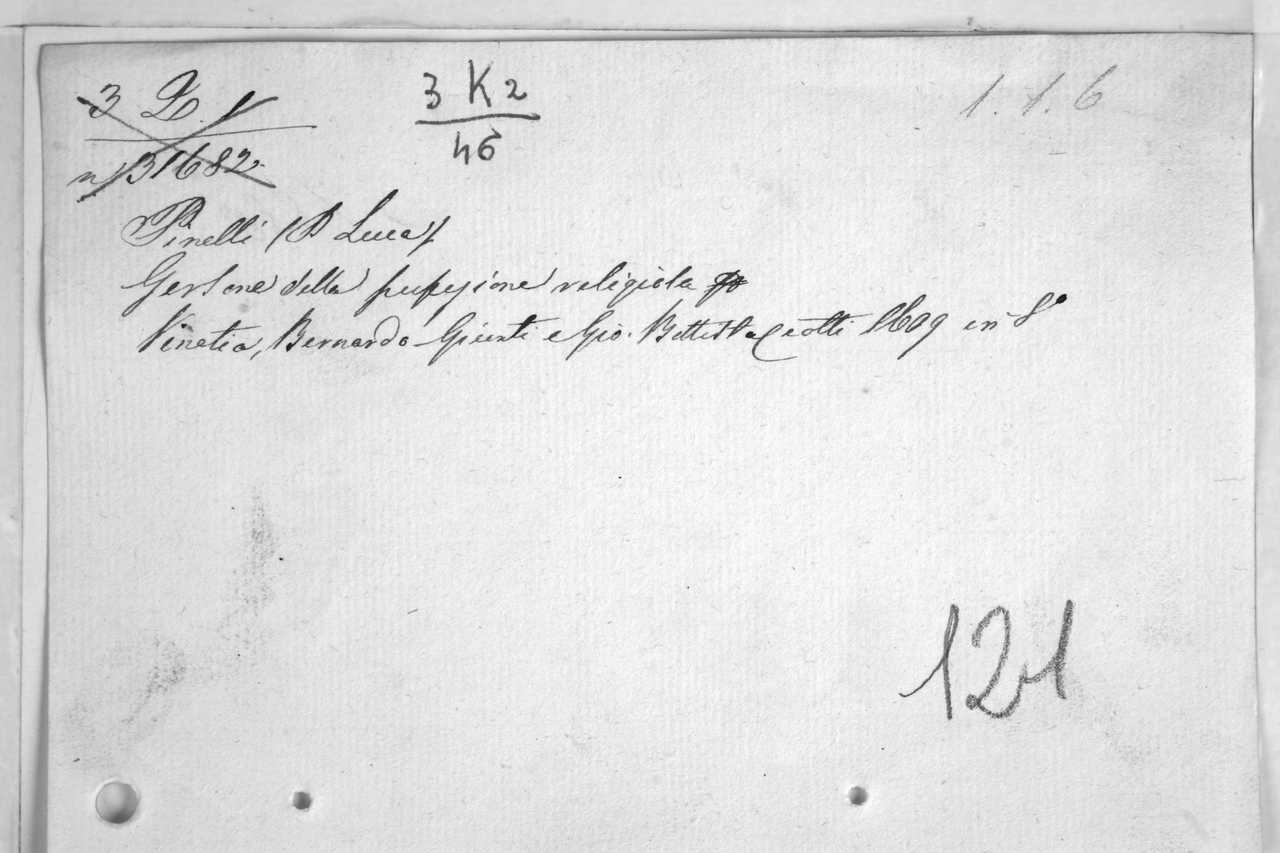 3 L. 1
n 31682
3 K 2
46
1. 1. 6
Pinelli (P Luca)
Gersone della perfezione religiosa
Venetia, Bernardo Giunti e Gio. Battista Ciotti 1609 in 8°
121